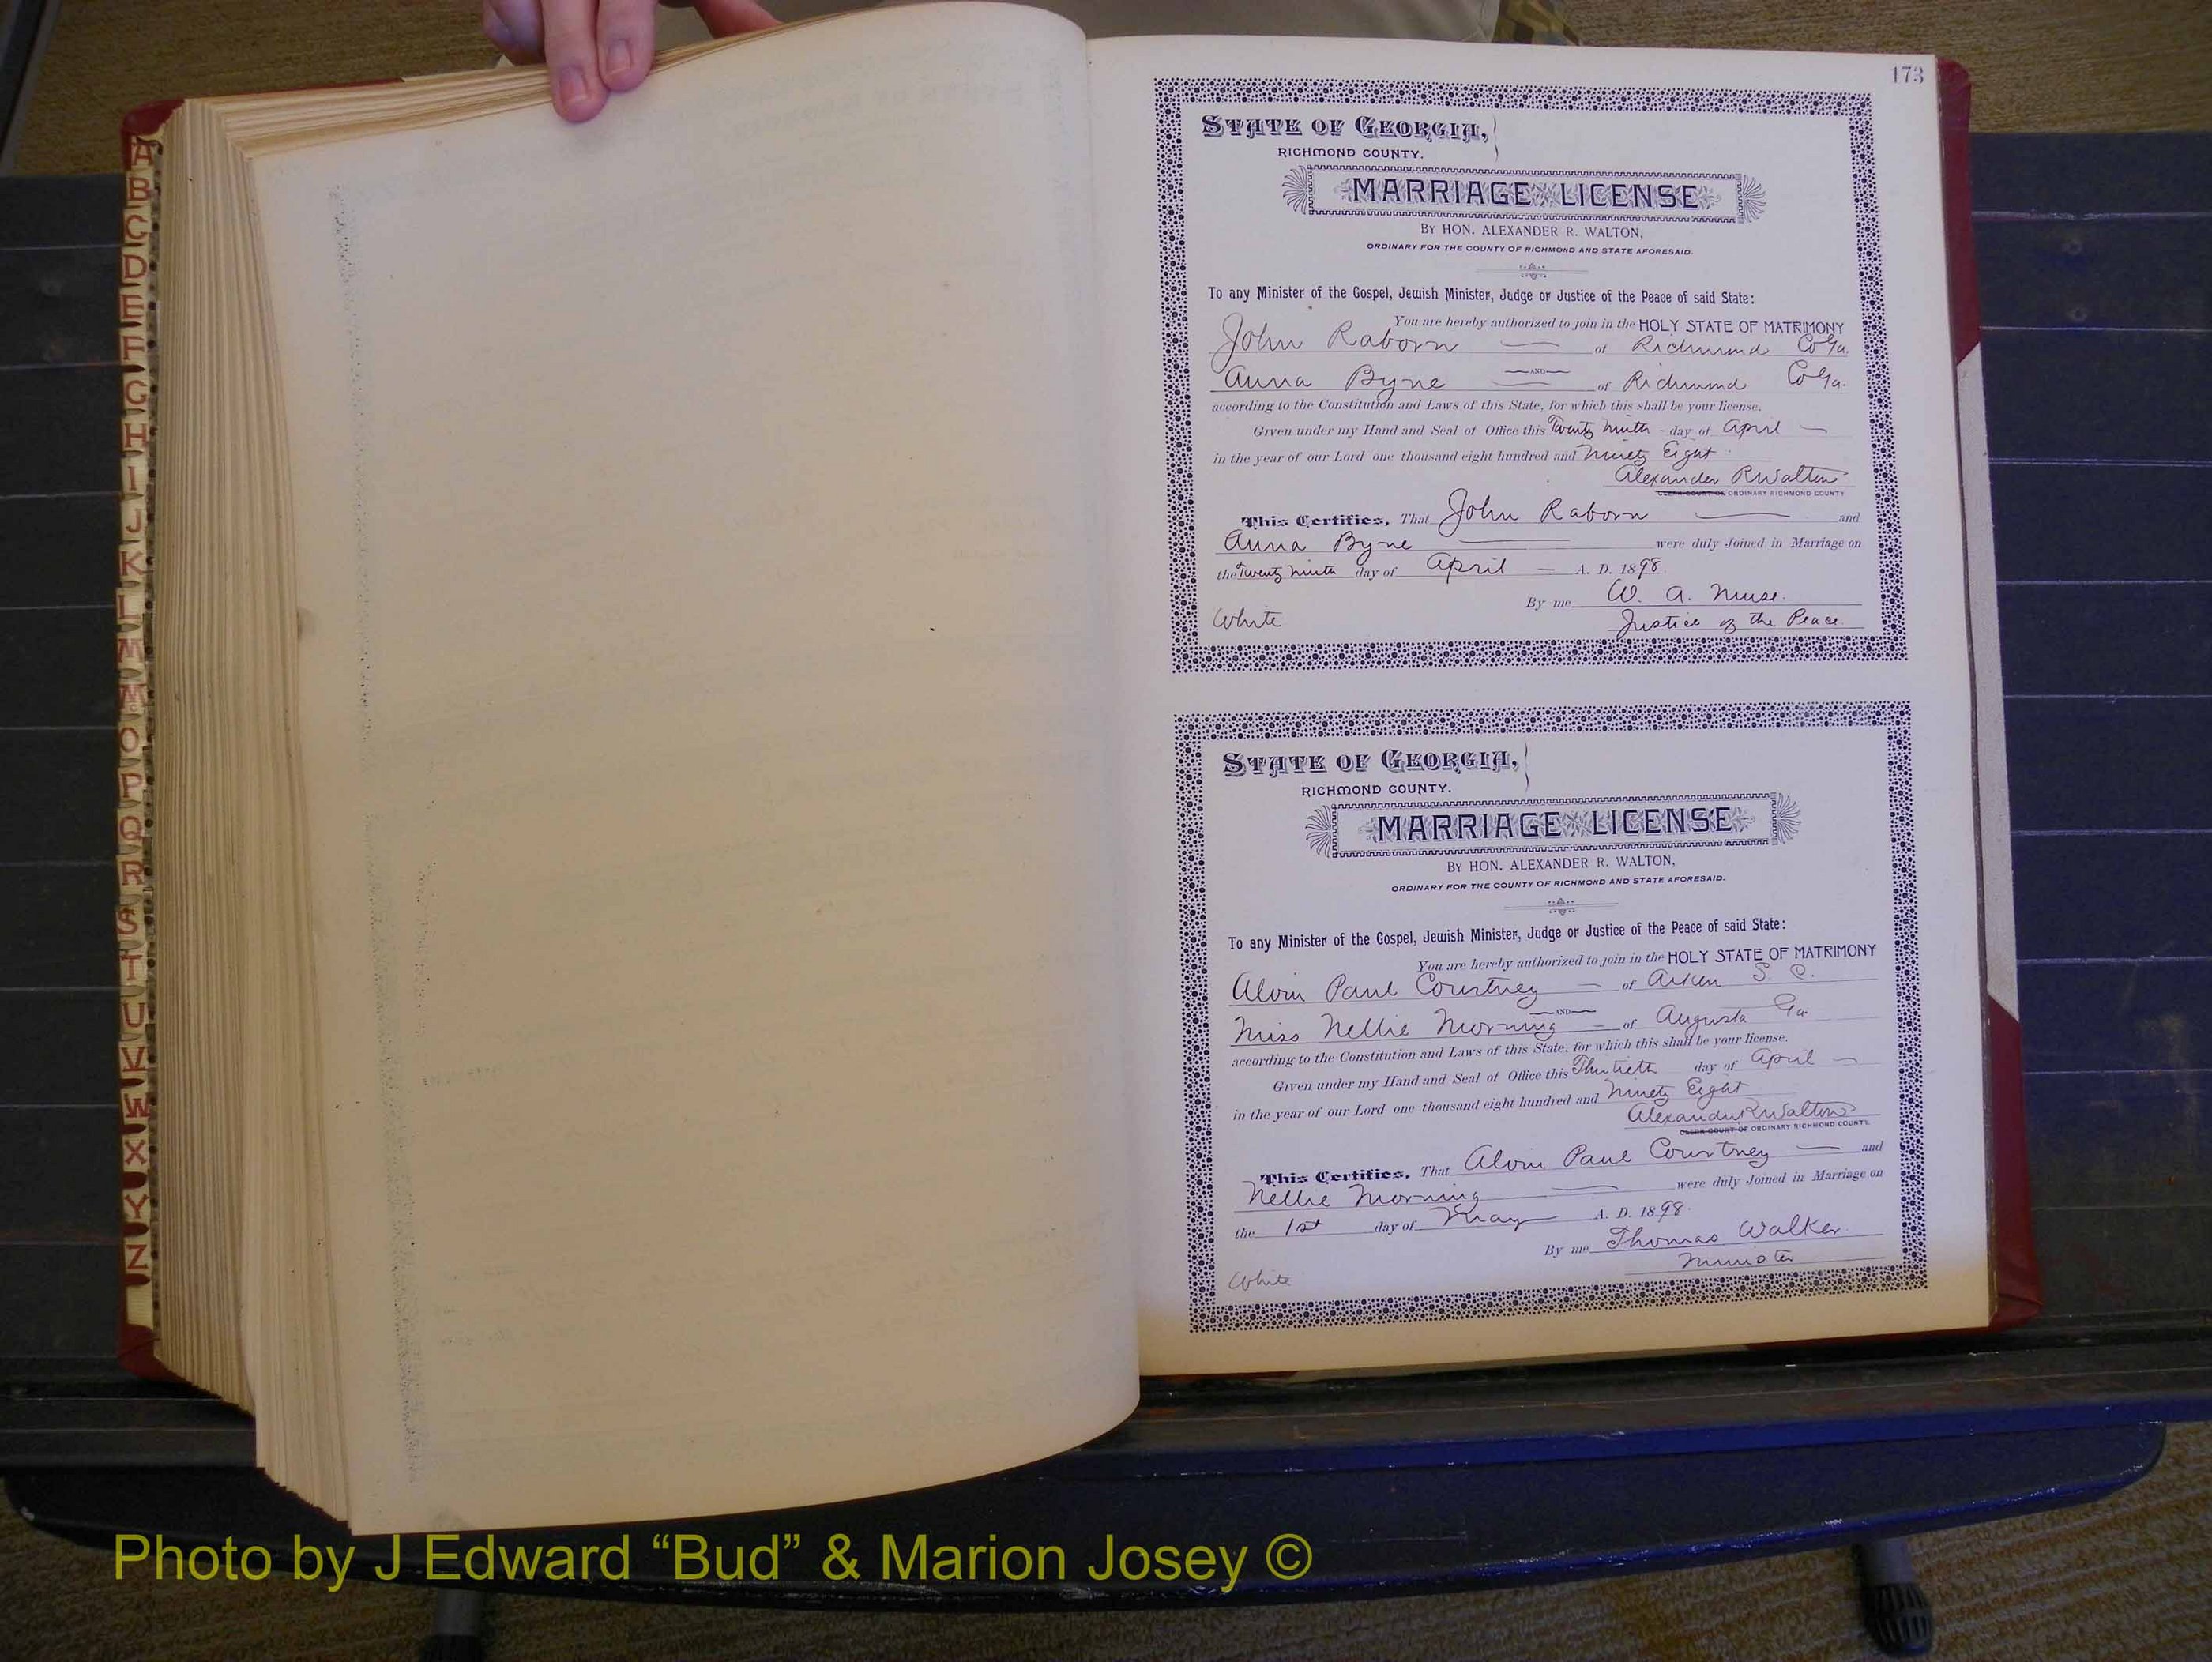 173
STATE OF GEORGIA,
RICHMOND COUNTY.
MARRIAGE LICENSE
BY HON. ALEXANDER R. WALTON,
ORDINARY FOR THE COUNTY OF RICHMOND AND STATE AFORESAID.
To any Minister of the Gospel, Jewish Minister, Judge or Justice of the Peace of said State:
You are hereby authorized to join in the HOLY STATE OF MATRIMONY
John Raborn of Richmond Co Ga.
AND
Anna Byne of Richmond Co Ga.
according to the Constitution and Laws of this State, for which this shall be your license.
Given under my Hand and Seal of Office this Twenty Ninth day of April
in the year of our Lord one thousand eight hundred and Ninety Eight
Alexander R Walton
CLERK COURT OF ORDINARY RICHMOND COUNTY
This Certifies, That John Raborn and
Anna Byne were duly Joined in Marriage on
the Twenty Ninth day of April A. D. 1898
By me W. A.
White Justice of the Peace
STATE OF GEORGIA,
RICHMOND COUNTY.
MARRIAGE LICENSE
BY HON. ALEXANDER R. WALTON,
ORDINARY FOR THE COUNTY OF RICHMOND AND STATE AFORESAID.
To any Minister of the Gospel, Jewish Minister, Judge or Justice of the Peace of said State:
You are hereby authorized to join in the HOLY STATE OF MATRIMONY
Alvin Paul Courtney of Aiken S. C.
AND
Miss Nellie Morning of Augusta Ga.
according to the Constitution and Laws of this State, for which this shall be your license.
Given under my Hand and Seal of Office this Thirtieth day of April
in the year of our Lord one thousand eight hundred and Ninety Eight
Alexander R Walton
CLERK COURT OF ORDINARY RICHMOND COUNTY.
This Certifies, That Alvin Paul Courtney and
Nellie Morning were duly Joined in Marriage on
the 1st day of May A. D. 1898
By me Thomas Walker
Minister
White
A
B
C
D
E
F
G
H
I
J
K
L
M
Mc
O
P
Q
R
S
T
U
V
W
X
Y
Z
Photo by J Edward “Bud” & Marion Josey ©